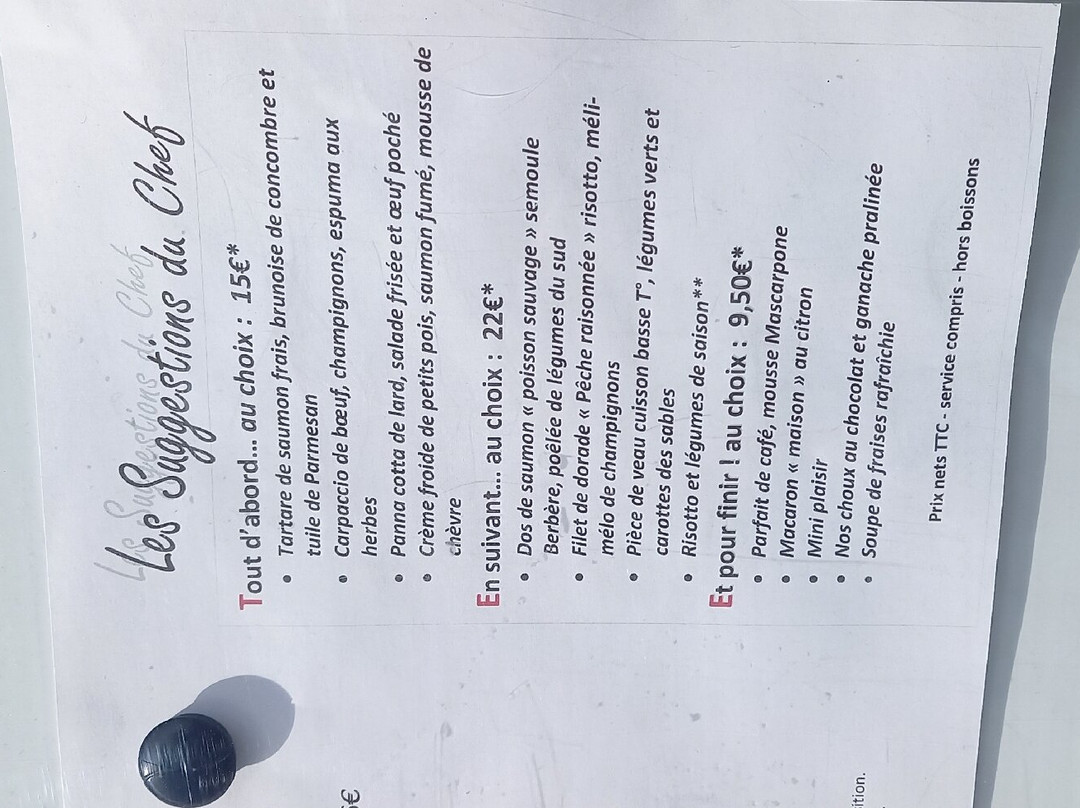 Les Suggestions du Chef
Tout d'abord... au choix : 15€*
• Tartare de saumon frais, brunoise de concombre et
tuile de Parmesan
• Carpaccio de bœuf, champignons, espuma aux
herbes
• Panna cotta de lard, salade frisée et œuf poché
• Crème froide de petits pois, saumon fumé, mousse de
chèvre
En suivant... au choix : 22€*
• Dos de saumon « poisson sauvage » semoule
Berbère, poêlée de légumes du sud
• Filet de dorade « Pêche raisonnée » risotto, méli-
mélo de champignons
• Pièce de veau cuisson basse T°, légumes verts et
carottes des sables
• Risotto et légumes de saison**
Et pour finir ! au choix : 9,50€*
• Parfait de café, mousse Mascarpone
• Macaron « maison » au citron
• Mini plaisir
• Nos choux au chocolat et ganache pralinée
• Soupe de fraises rafraîchie
Prix nets TTC - service compris - hors boissons